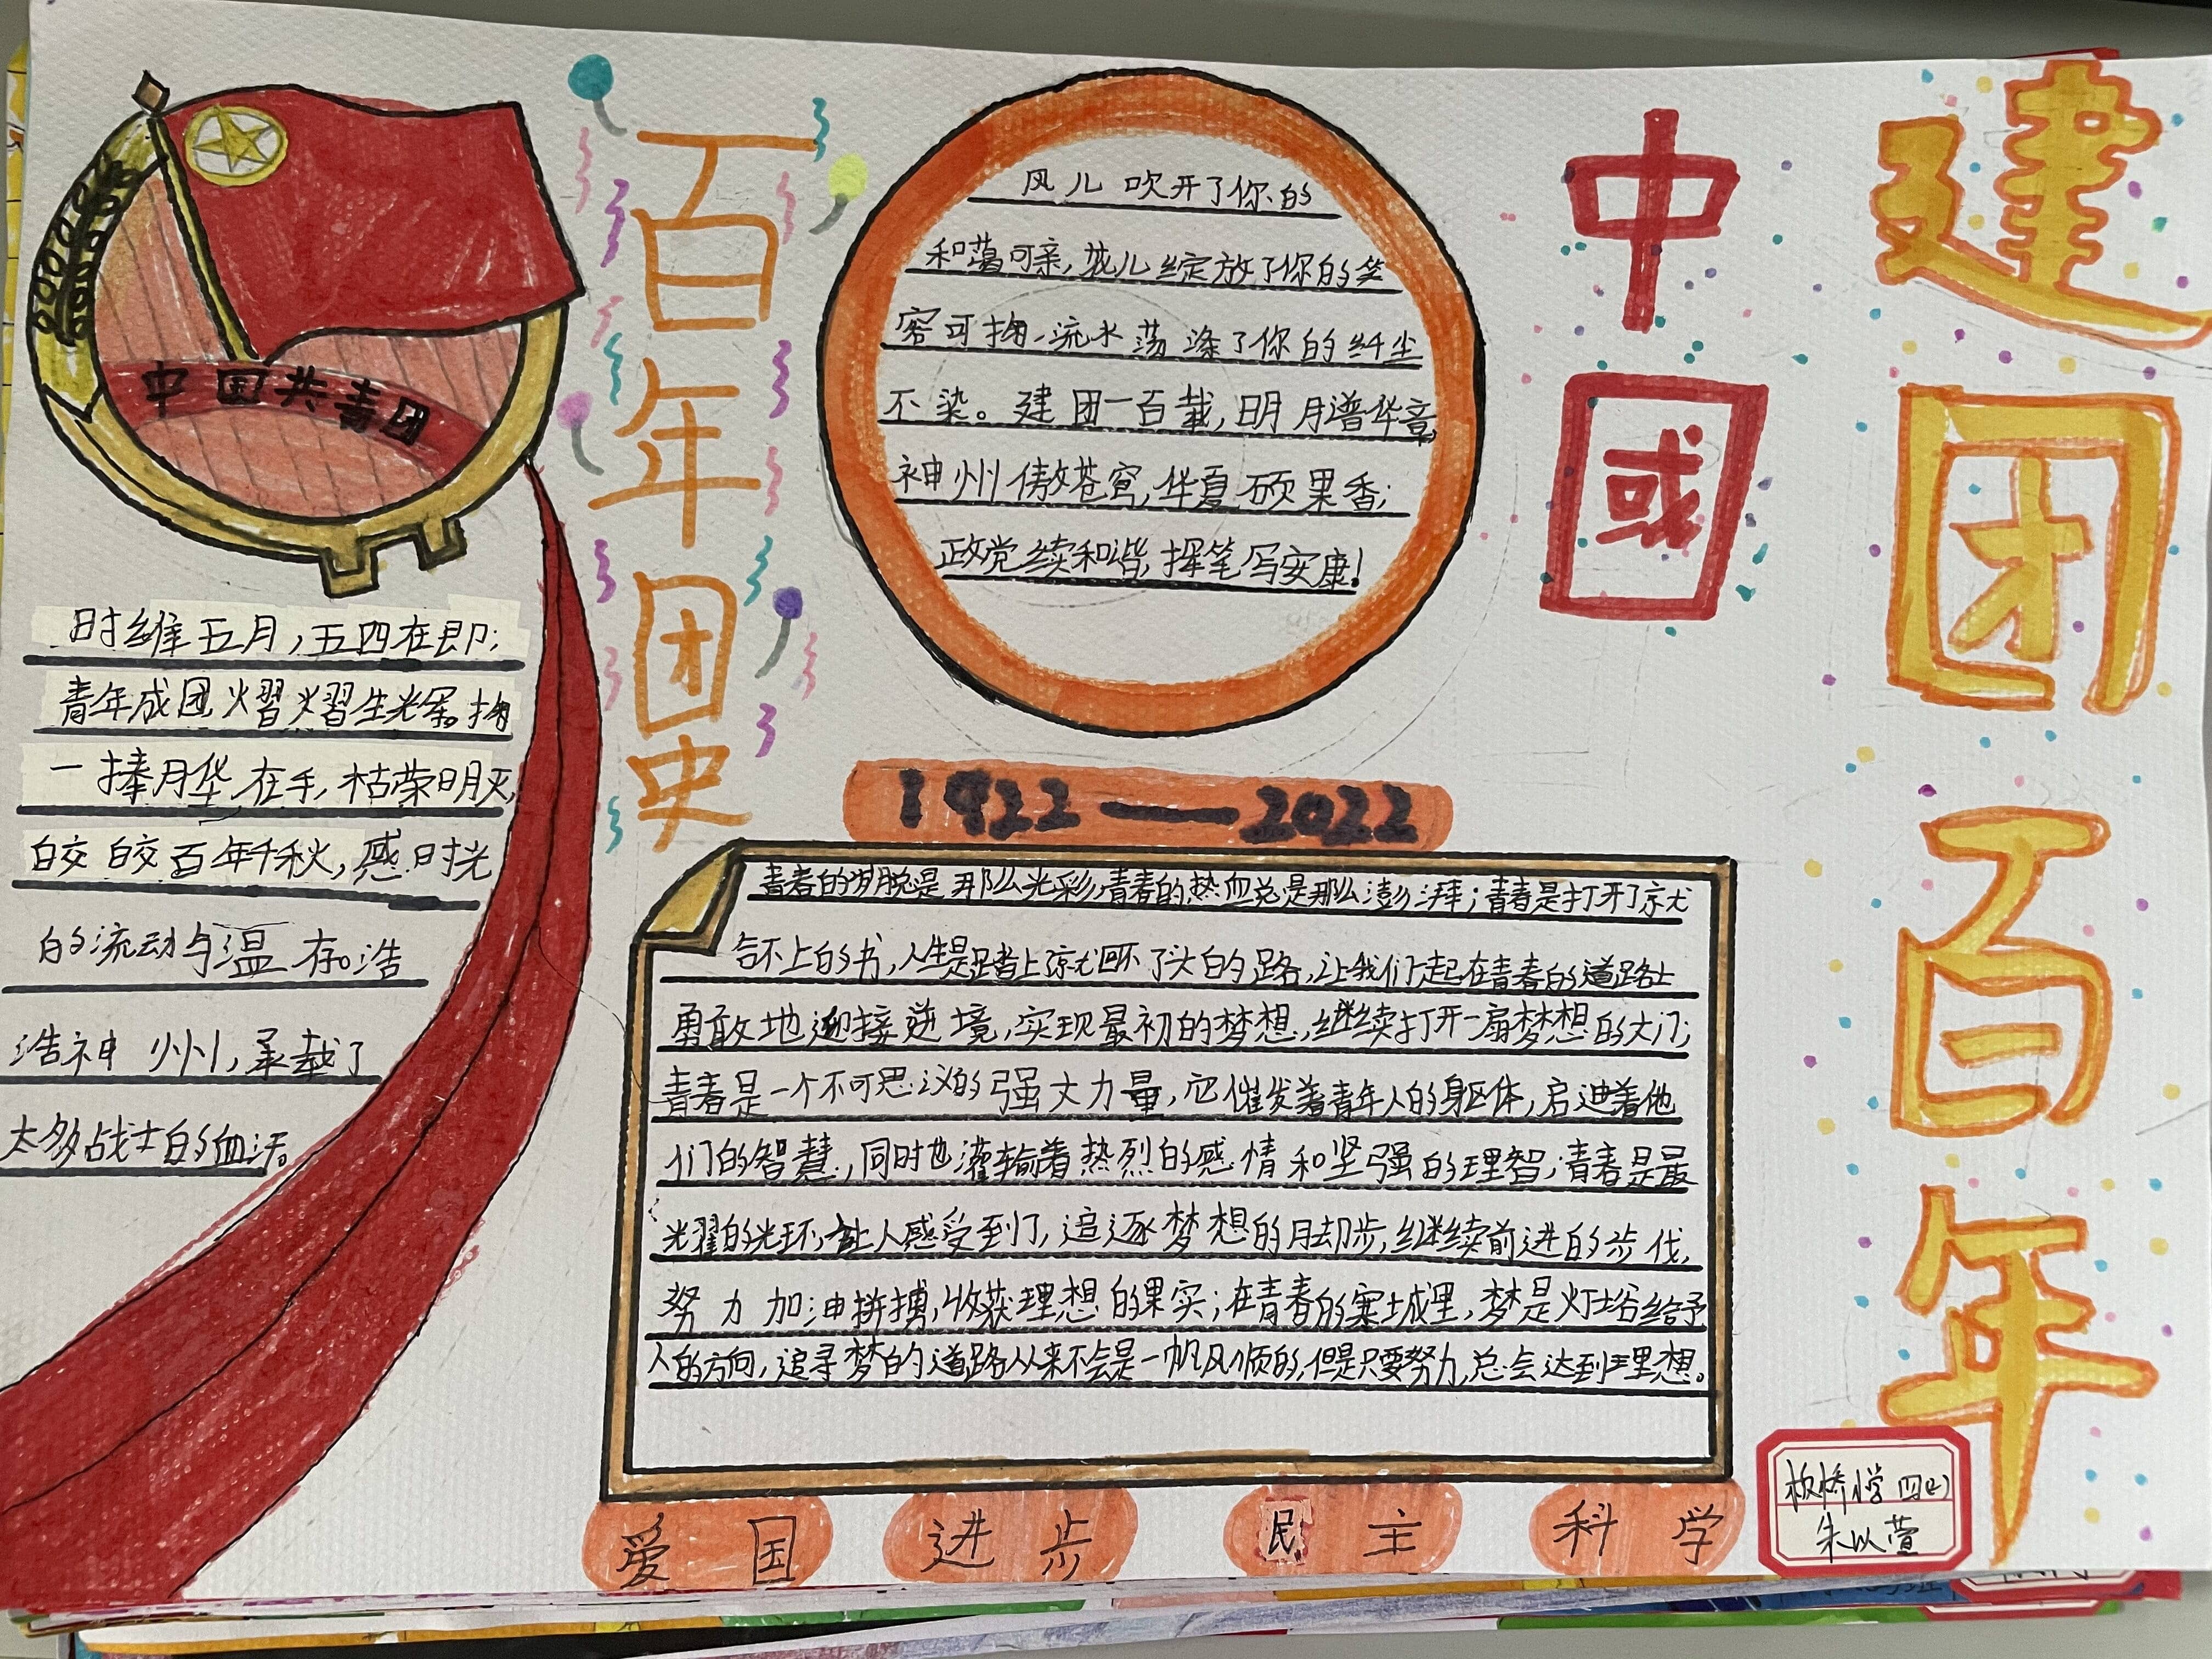 建团百年
中國
百年团史
中国共青团
风儿吹开了你的
和蔼可亲,花儿绽放了你的笑
容可掬、流水荡涤了你的纤尘
不染。建团一百载,明月谱华章,
神州傲苍穹,华夏硕果香;
政党续和谐,挥笔写安康!
时维五月,五四在即;
青年成团,熠熠生光辉。掬
一捧月华在手,枯荣明灭,
皎皎百年千秋,感时光
的流动与温存。浩
浩神州,承载了
太多战士的血汗。
1922——2022
青春的岁月总是那么光彩,青春的热血总是那么澎湃;青春是打开了就
合不上的书,人生是踏上了就回不了头的路,让我们一起在青春的道路上
勇敢地迎接逆境,实现最初的梦想,继续打开一扇梦想的大门;
青春是一个不可思议的强大力量,它催发着青年人的身躯体,启迪着他
们的智慧,同时也灌输着热烈的感情和坚强的理智;青春是最
光耀的光环,让人感受到了,追逐梦想的脚步,继续前进的步伐,
努力加油拼搏,收获理想的果实;在青春的寨城里,梦是灯塔给予
人的方向,追寻梦的道路从来不会是一帆风顺的,但是只要努力,总会达到理想。
爱国 进步 民主 科学
板桥小学 四(2)
朱以萱